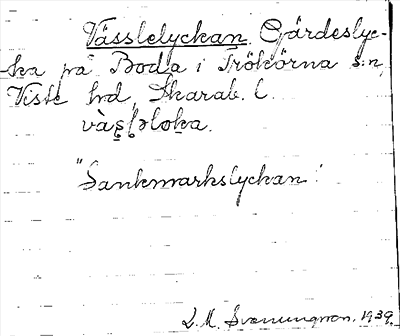 Vässlelyckan. Gärdeslyc-
ka på Boda i Trökörna s:n,
Viste hd, Skarab. l.
"Sankmarkslyckan".
L. M. Svenungsson. 1939.